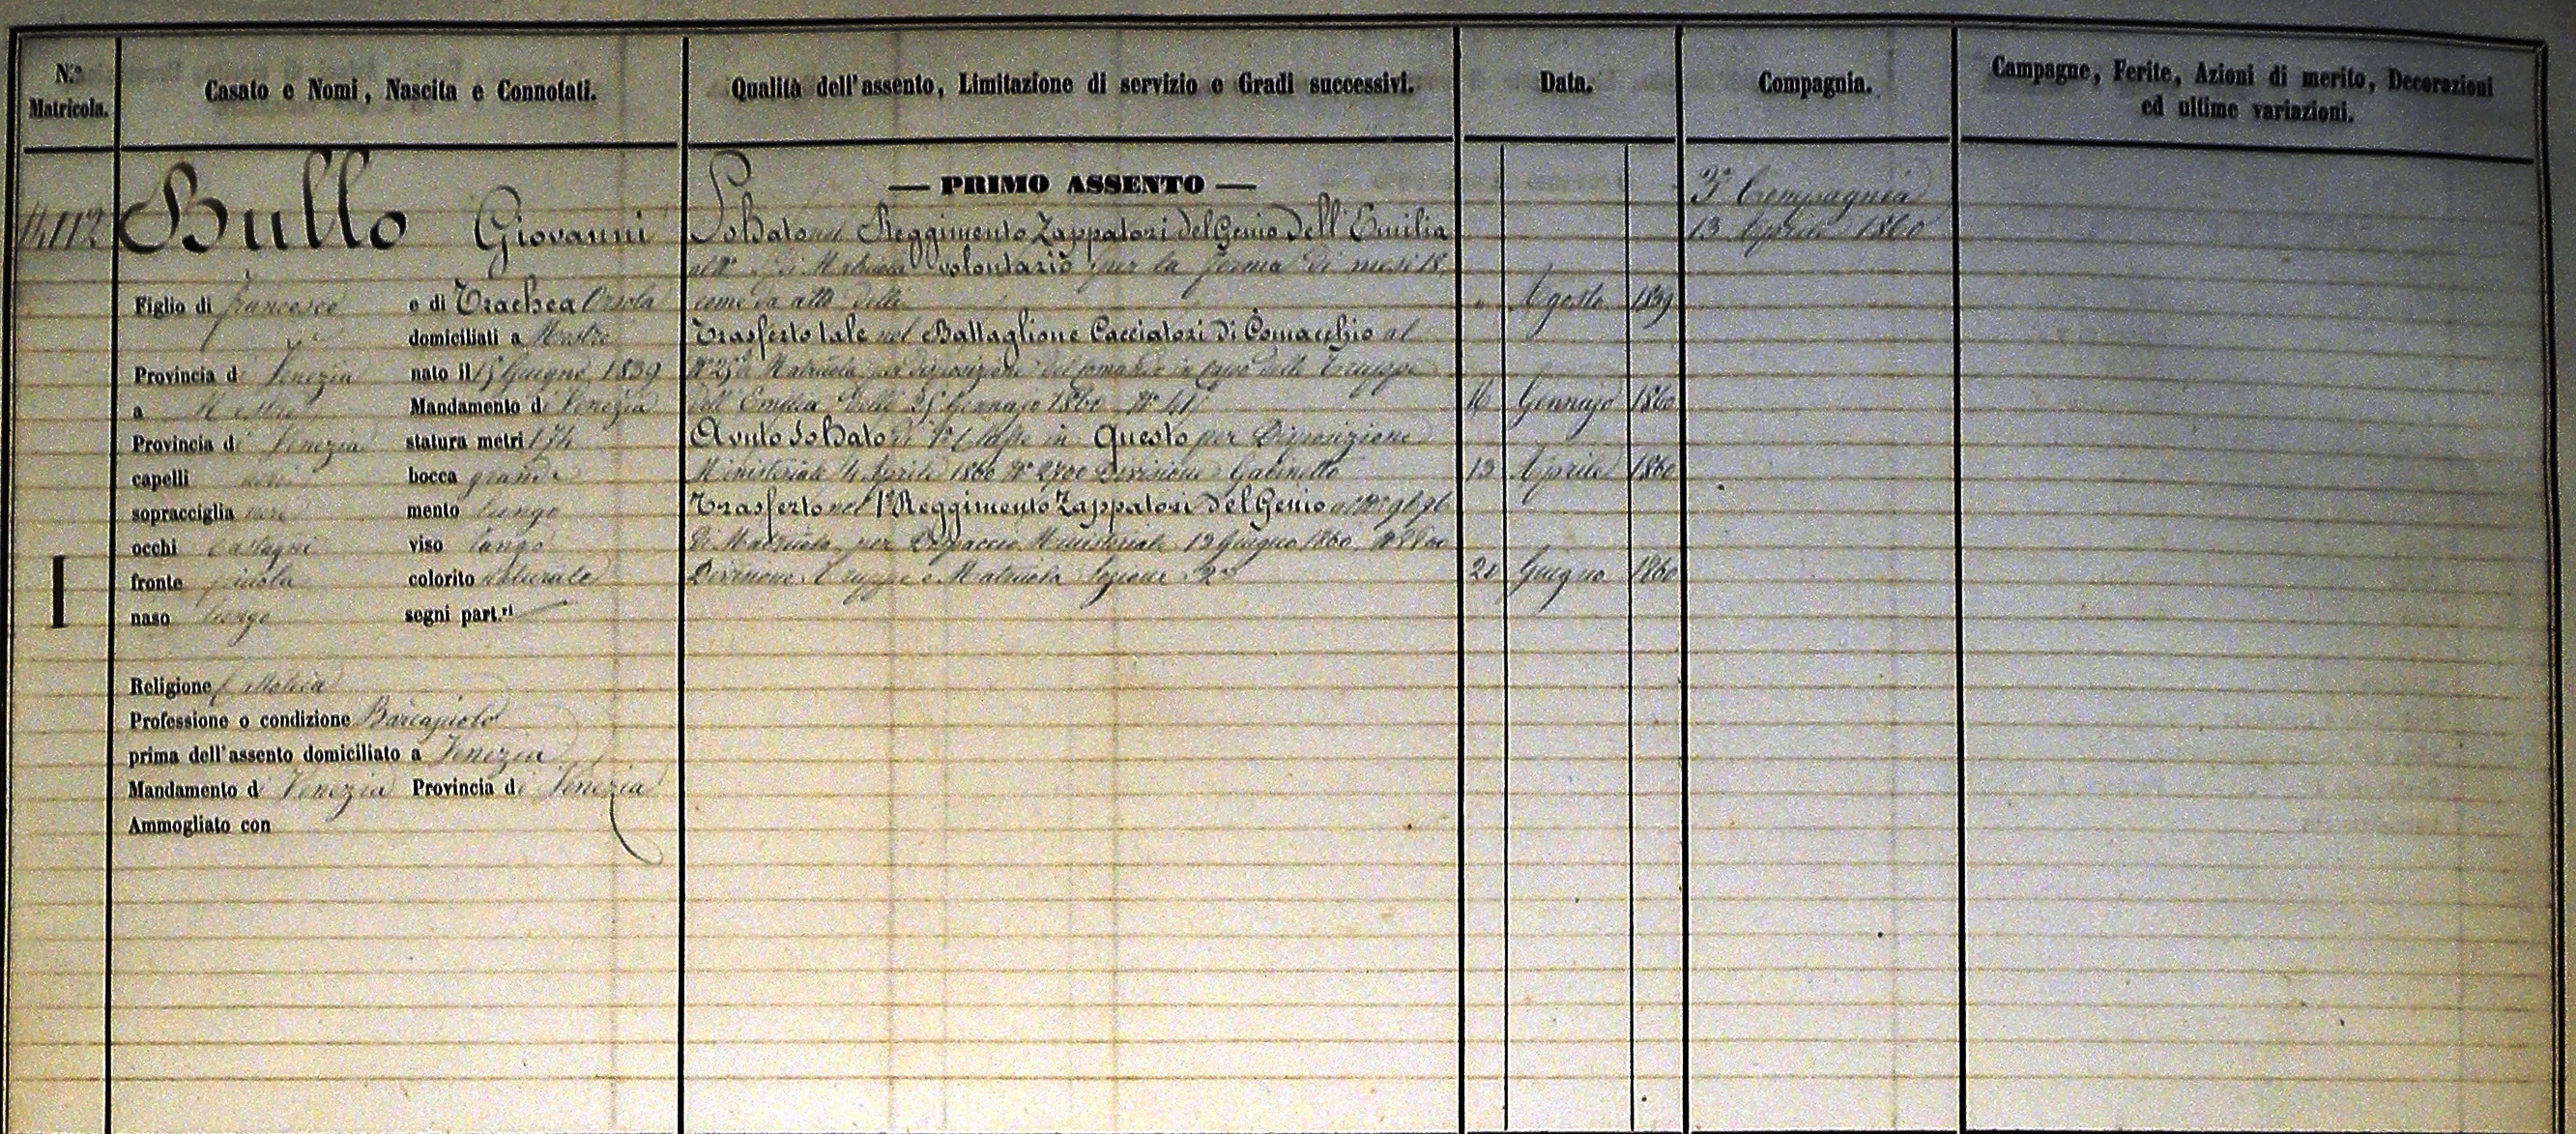 N.o Matricola.
Casato e Nomi, Nascita e Connotati.
Qualità dell'assento, Limitazione di servizio e Gradi successivi.
Data.
Compagnia.
Campagne, Ferite, Azioni di merito, Decorazioni
ed ultime variazioni.
Bullo Giovanni
Figlio di Francesco e di Trachea Orsola
domiciliati a Mestre
Provincia di Venezia nato il 15 Giugno 1839
a Mestre Mandamento di Venezia
Provincia di Venezia statura metri
capelli neri bocca grande
sopracciglia nere mento lungo
occhi castagni viso lungo
fronte piccola colorito naturale
naso lungo segni part.ri
Religione Cattolica
Professione o condizione Barcajuolo
prima dell'assento domiciliato a Venezia
Mandamento di Venezia Provincia di Venezia
Ammogliato con
— PRIMO ASSENTO —
Soldato nel Reggimento Zappatori del Genio dell'Emilia
al N° di Matricola volontario per la ferma di mesi 18
come da atto delli " Agosto 1859
Trasferto tale nel Battaglione Cacciatori di Comacchio al
di Matricola per disposizione del comando in capo delle Truppe
dell'Emilia delli 25 Gennajo 1860 16 Gennajo 1860
Avuto Soldato di 1a Classe in Questo per Disposizione
Ministeriale 4 Aprile 1860 N° 2700 Divisione Gabinetto 13 Aprile 1860
Trasferto nel 1° Reggimento Zappatori del Genio al N° 9696
di Matricola per Dispaccio Ministeriale 12 Giugno 1860
Divisione Truppe e Matricola Sezione 2a 21 Giugno 1860
3a Compagnia
13 Aprile 1860